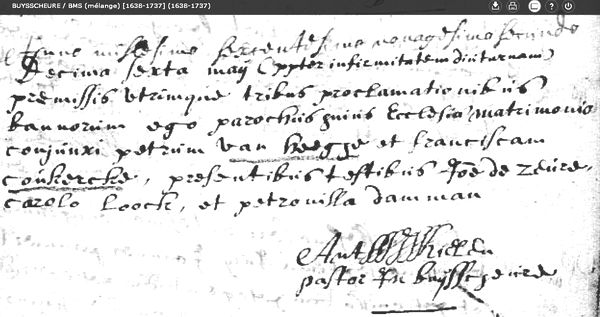 BUYSSCHEURE / BMS (mélange) [1638-1737] (1638-1737)
Anno millesimo sexcentesimo nonagesimo secundo
Decima sexta maij (ppter infirmitatem diuturnam)
premissis utrimque tribus proclamationibus
bannorum ego parochus huius Ecclesia matrimonio
conjunxi petrum van heegge et franciscam
coukercke, presentibus testibus Joe de zeure,
carolo Loock, et petronilla damman
pastor In buysscheure